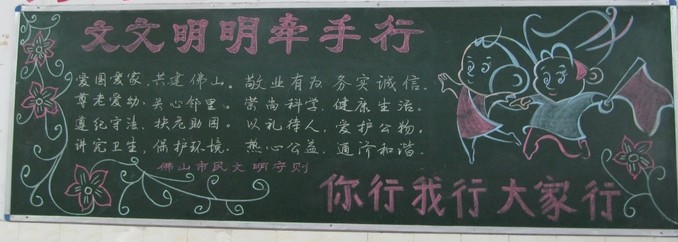 文文明明牵手行
爱国爱家，共建佛山。敬业有为，务实诚信。
尊老爱幼，关心邻里。崇尚科学，健康生活。
遵纪守法，扶危助困。以礼待人，爱护公物。
讲究卫生，保护环境。热心公益，通济和谐。
佛山市民文明守则
你行我行大家行